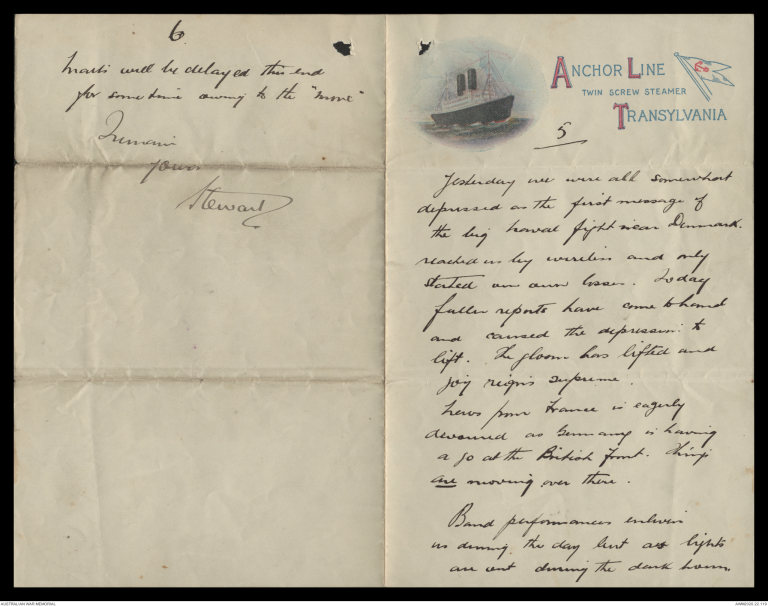 6
Mails will be delayed this end
for some time owing to the "move"
I remain
yours
Stewart
ANCHOR LINE
TWIN SCREW STEAMER
TRANSYLVANIA
5
Yesterday we were all somewhat
depressed as the first message of
the big naval fight near Denmark.
reached us by wireless and only
stated our own losses. Today
fuller reports have come to hand
and caused the depression to
lift. The gloom has lifted and
joy reigns supreme.
News from France is eagerly
devoured as Germany is having
a go at the British front. Things
are moving over there.
Band performances enliven
us during the day but all lights
are out during the dark hours.
AUSTRALIAN WAR MEMORIAL